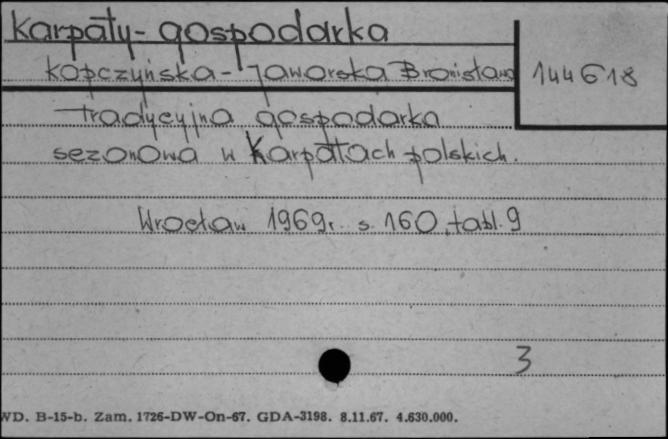 Karpaty - gospodarka
Kopczyńska - Jaworska Bronisława
144618
Tradycyjna gospodarka
sezonowa w Karpatach polskich.
Wrocław 1969r. s. 160, tabl. 9
3
WD. B-15-b. Zam. 1726-DW-On-67. GDA-3198. 8.11.67. 4.630.000.